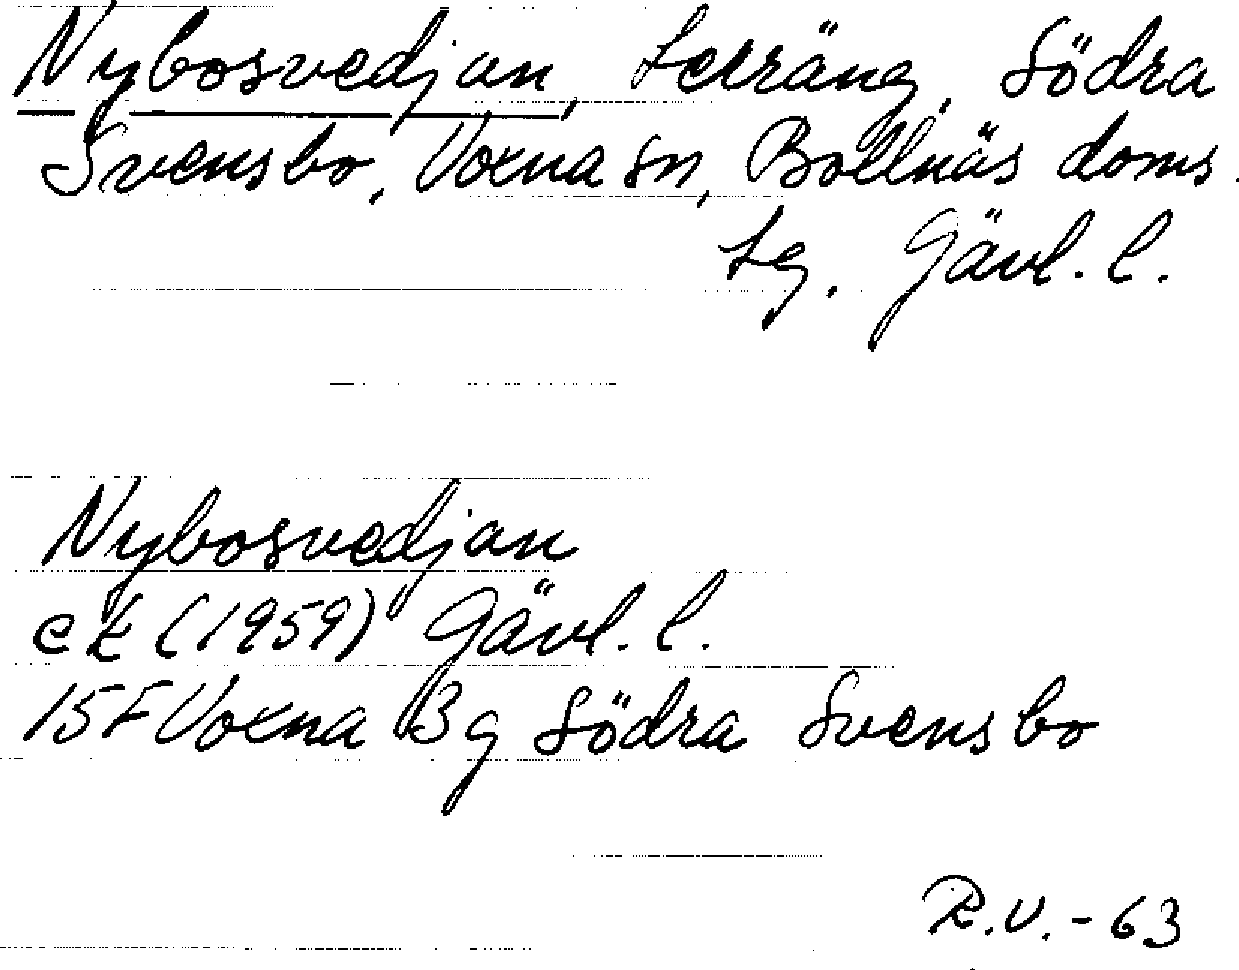 Nybosvedjan, terräng, Södra
Svensbo, Voxna sn, Bollnäs doms.
tg. Gävl. l.
Nybosvedjan
ek (1959) Gävl. l.
15F Voxna 3g Södra Svensbo
R.V. - 63